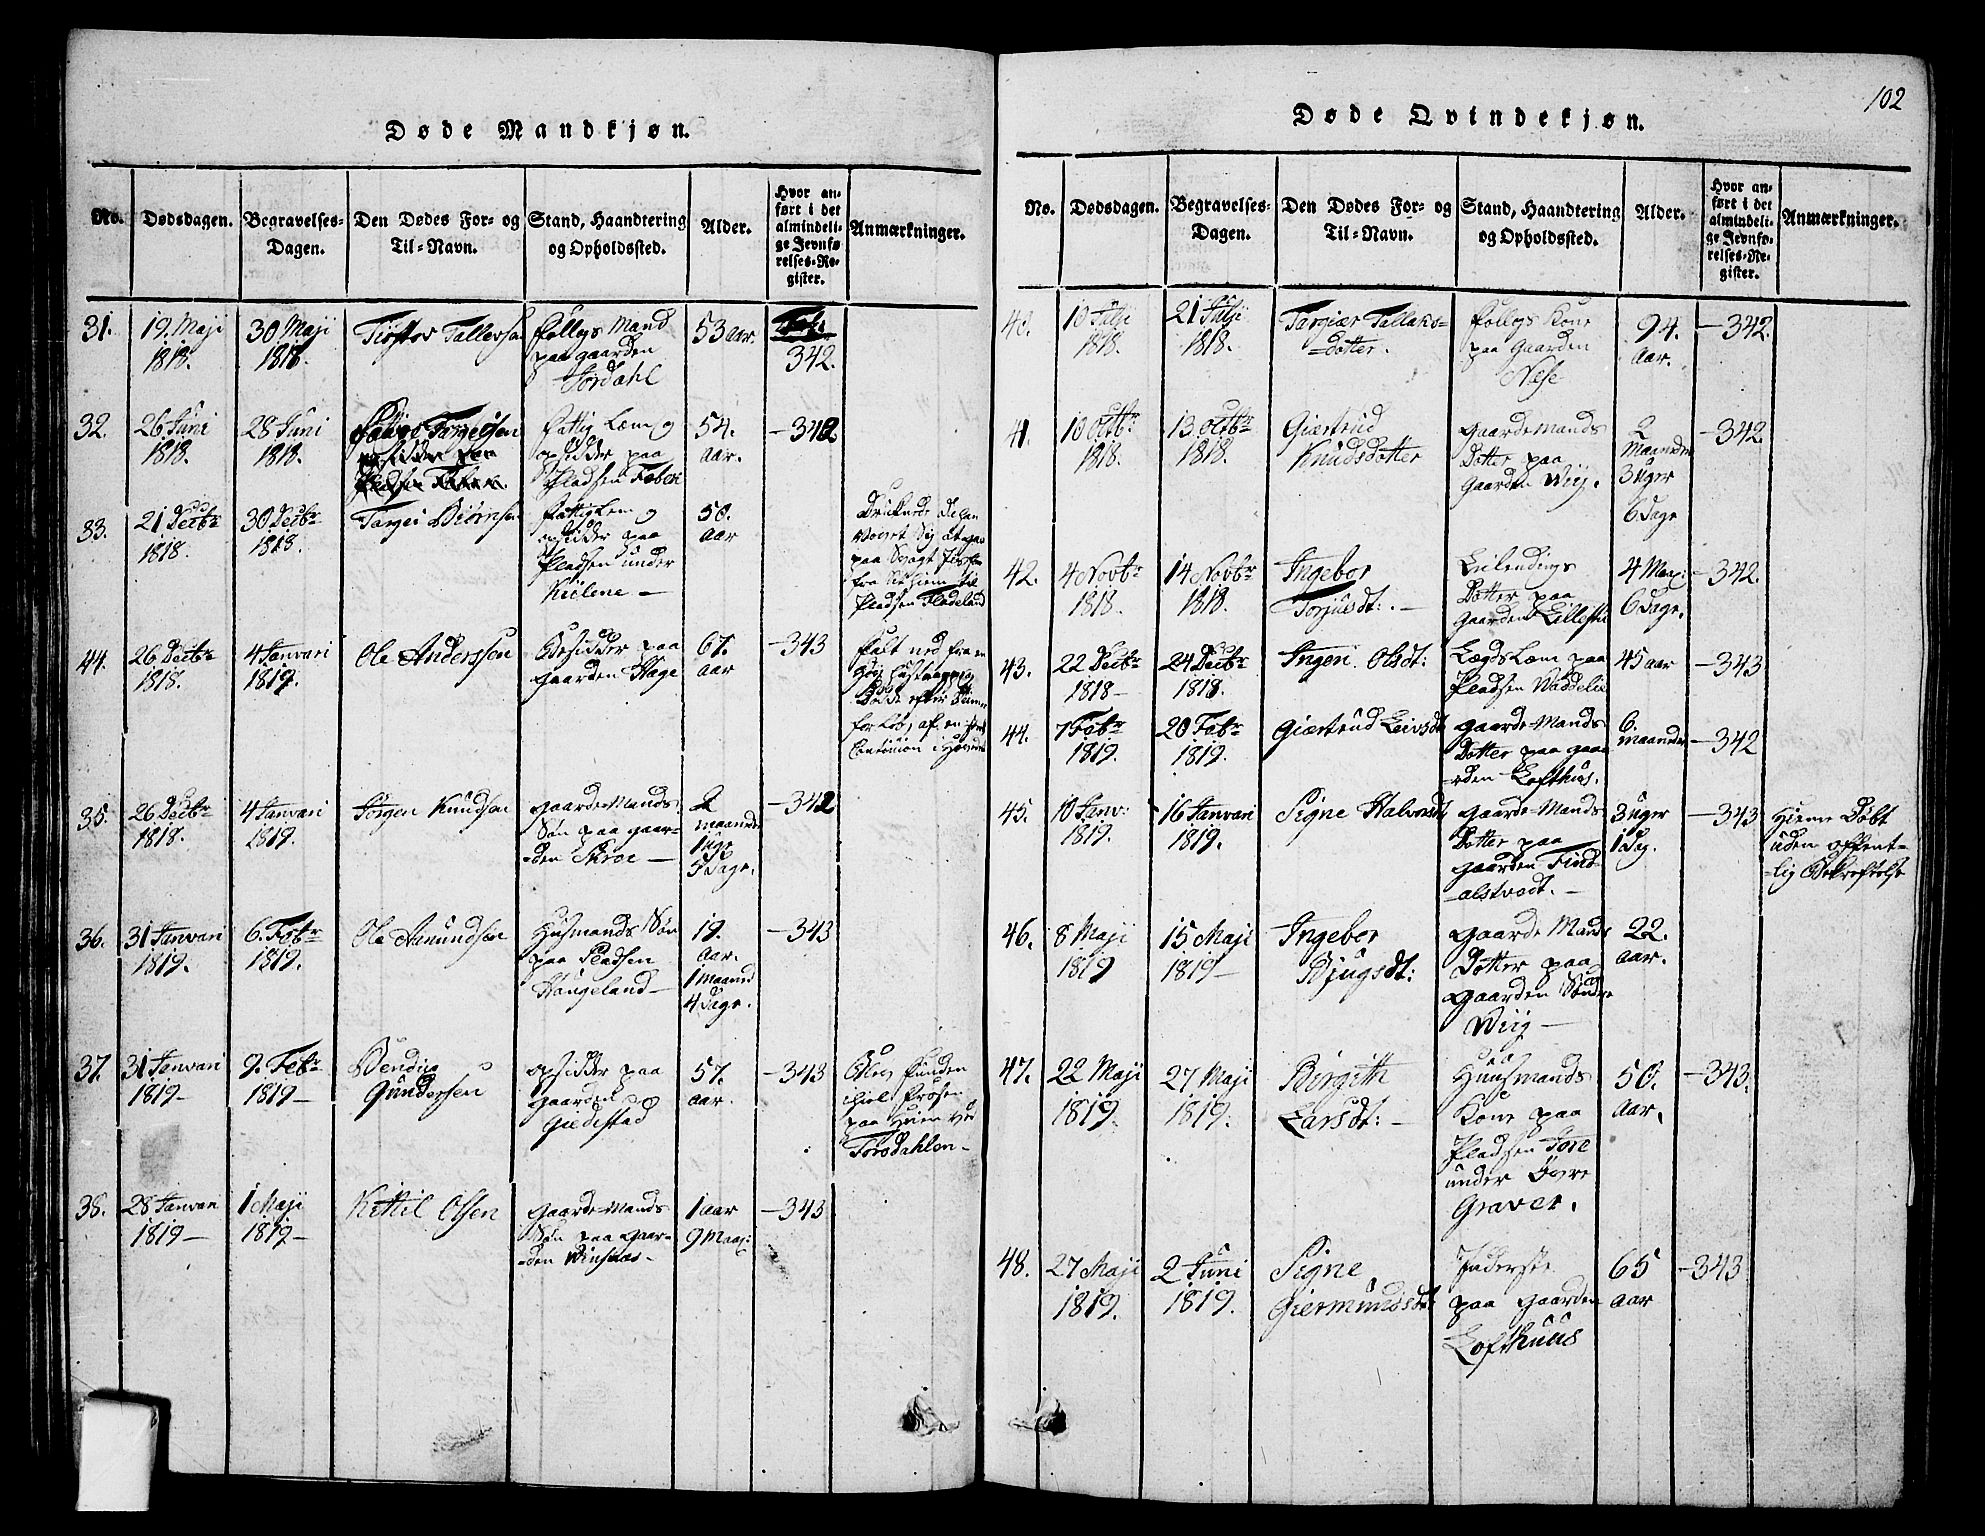 102
Døde Mandkjøn.
No. Dødsdagen. Begravelses-Dagen. Den Dødes For- og Til-Navn. Stand, Haandtering og Opholdssted. Alder. Hvor anført i det almindelige Jevnførelses-Register. Anmærkninger.
31. 19. Maji 1818. 30 Maji 1818. Tallevsen Follogs Mand paa gaarden Jordahl 53 aar. Fol. 342.
32. 26 Juni 1818. 28 Juni 1818. Torgersen fattig Lem og opsidder paa Pladsen 54. aar. -342.
33. 21 Decbr 1818. 30 Decbr 1818. Torgei Biørnsen fattiglem og opsidder paa Pladsen under Kiilene - 50. aar
paa Svagt
fra Sit Hiem til
Pladsen Fladeland
44. 26 Decbr 1818. 4 Januari 1819. Ole Anderssen Opsidder paa gaarden Hage 67. aar -343 Falt ned fra en
Døde efter
forløb, af en
35. 26 Decbr 1818. 4 Januari 1819. Jørgen Knudsen gaardeMands Søn paa gaar-
-den Skroe - 2 maander 1 uge 5 Dage. -342
36. 31 Januari 1819. 6. Febr 1819. Ole Amundsen Husmands Søn paa Pladsen Haugeland - 19. aar. 1 Maaned 4 Dage. -343
37. 31 Januari 1819- 9. Febr 1819- Gundersen opsidder paa gaarden Giedestad 57. aar. -343 Blev funden
ihiel frosen
paa Heien ved
Torsdahlen -
38. 28 Januari 1819- 1 Maji 1819- Kittil Olsen gaardeMands Søn paa Gaar-
-den Winsnes - 1 aar 9 Maa: -343
Døde Qvindekjøn.
No. Dødsdagen. Begravelses-Dagen. Den Dødes For- og Til-Navn. Stand, Haandtering og Opholdssted. Alder. Hvor anført i det almindelige Jevnførelses-Register. Anmærkninger.
40. 10 Julji 1818. 21 Julji 1818. Targier Tallaks-
-dotter. Follogs Kone paa Gaarden Næse 94. aar. -342.
41. 10 Octbr 1818. 13. Octbr 1818. Giertrud Knudsdotter Gaardemands Dotter paa Gaarden Wiig. 2 Maander 3 uger 6 Dage -342
42. 4 Novbr 1818. 14 Novbr 1818. Ingebor Torjusdt: - Leilendings Dotter paa Gaarden 4 Maa: 6 Dage. -342.
43. 22 Decbr 1818- 24 Decbr 1818. Ingeri Olsdt: LægdsLem paa Pladsen 45 aar -343
44. 7 Febr 1819. 20 Febr 1819. Giertrud Leivsdt gaardeMands Dotter paa gaa-
-rden Lofthus. 6. maander -342
45. 10 Janv: 1819. 16 Januari 1819. Signe Halvorsdt gaardeMands Dotter paa gaarden Find-
alstvedt. - 3 uger 1 Dag. -343 Hieme Døbt
uden offent-
-lig Bekreftelse
46. 8 Maji 1819 15 Maji 1819- Ingebor Bjugsdt: gaardeMands Dotter paa gaarden Søndre Wiig - 22. aar.
47. 22 Maji 1819. 27 Maji 1819. Birgitte Larsdt: - Huusmands Kone paa Pladsen Tore under Øvre Graver. 50. aar. -343.
48. 27 Maji 1819. 2 Juni 1819. Signe Giermundsdt: Inderste paa Gaarden Lofthuus 65 aar -343